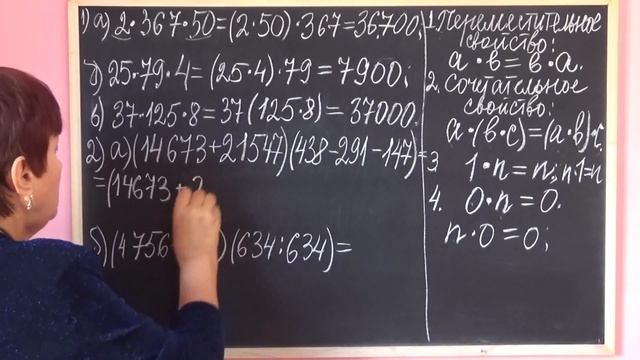 1) а) 2·367·50=(2·50)·367=36700;
б) 25·79·4=(25·4)·79=7900;
в) 37·125·8=37(125·8)=37000.
2) а) (14673+21547)(438-291-147)=
=(14673+2
б) (4756 )(634:634)=
1. Переместительное
свойство:
а·в=в·а.
2. Сочетательное
свойство:
а·(в·с)=(а·в)·с.
3 1·n=n; n·1=n
4. 0·n=0.
n·0=0;